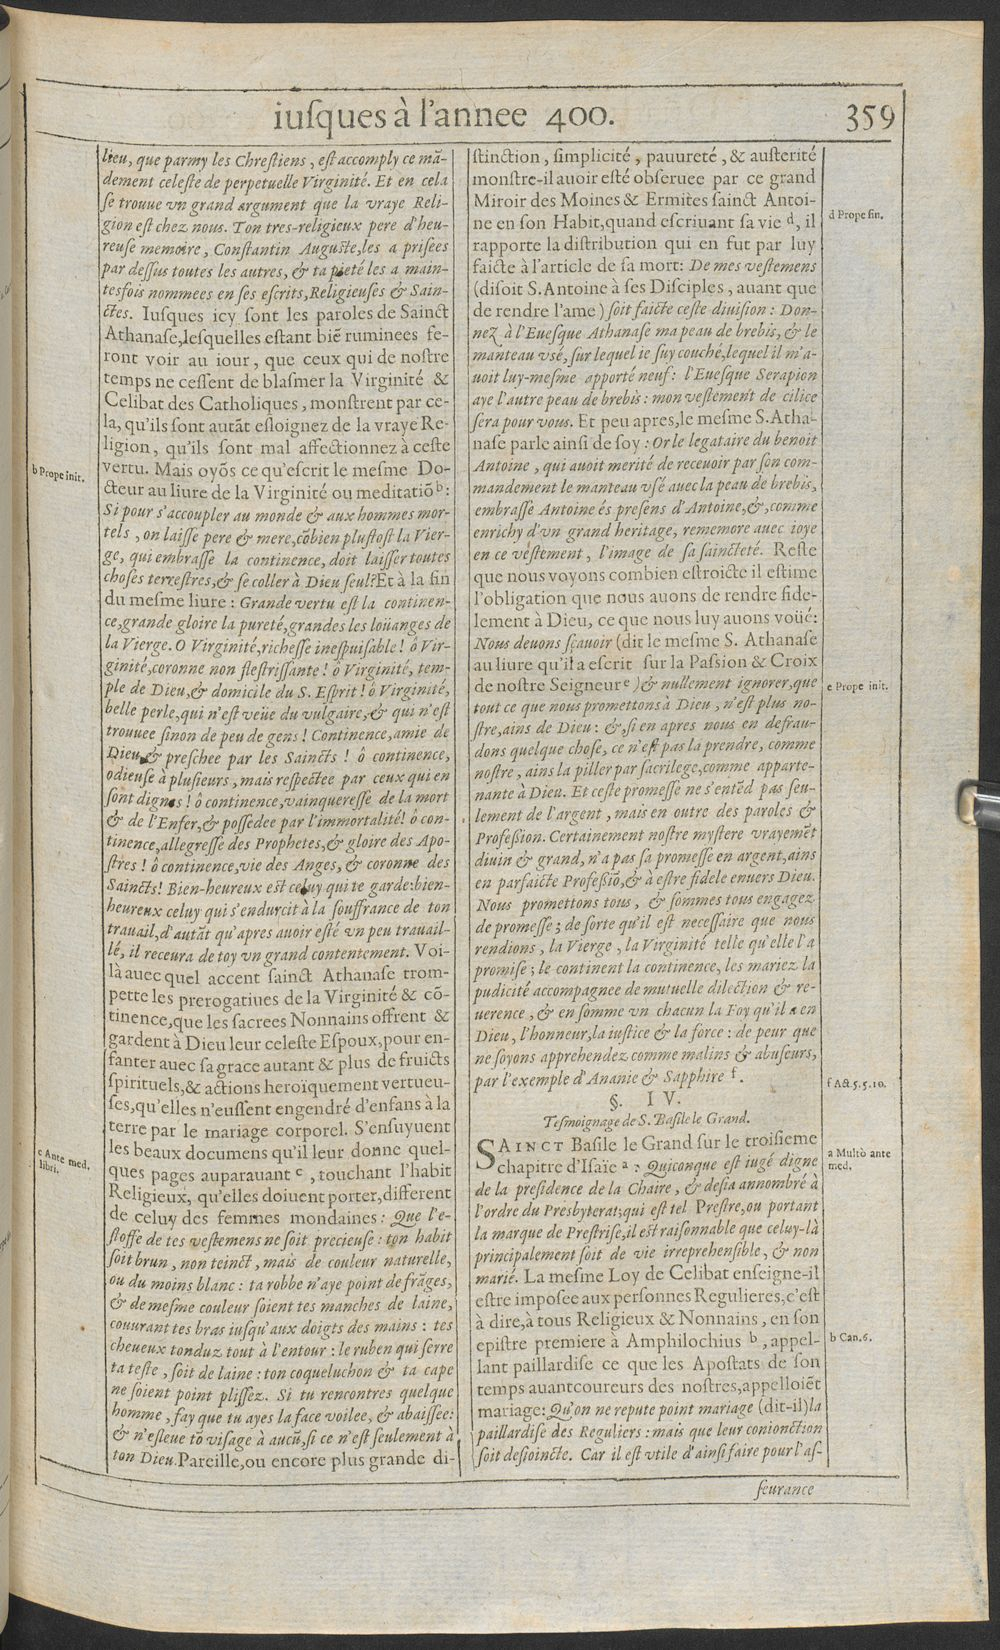 iuſques à l'annee 400.
359
lieu, que parmy les Chreſtiens, eſt accomply ce mã-
dement celeſte de perpetuelle Virginité. Et en cela
ſe trouue vn grand argument que la vraye Reli-
gion eſt chez nous. Ton tres-religieux pere d'heu-
reuſe memoire, Conſtantin Auguſte, les a priſées
par deſſus toutes les autres, & ta pieté les a main-
tesfois nommees en ſes eſcrits, Religieuſes & Sain-
ctes. Iuſques icy ſont les paroles de Sainct
Athanaſe, leſquelles eſtant biẽ ruminees fe-
ront voir au iour, que ceux qui de noſtre
temps ne ceſſent de blaſmer la Virginité &
Celibat des Catholiques, monſtrent par ce-
la, qu'ils ſont autãt eſloignez de la vraye Re-
ligion, qu'ils ſont mal affectionnez à ceſte
vertu. Mais oyõs ce qu'eſcrit le meſme Do-
b Prope init.
cteur au liure de la Virginité ou meditatiõ b:
Si pour s'accoupler au monde & aux hommes mor-
tels, on laiſſe pere & mere, cõbien pluſtoſt la Vier-
ge, qui embraſſe la continence, doit laiſſer toutes
choſes terreſtres, & ſe coller à Dieu ſeul? Et à la fin
du meſme liure: Grande vertu eſt la continen-
ce, grande gloire la pureté, grandes les loüanges de
la Vierge. O Virginité, richeſſe ineſpuiſable! ô Vir-
ginité, coronne non fleſtriſſante! ô Virginité, tem-
ple de Dieu, & domicile du S. Eſprit! ô Virginité,
belle perle, qui n'eſt veüe du vulgaire, & qui n'eſt
trouuee ſinon de peu de gens! Continence, amie de
Dieu, & preſchee par les Saincts! ô continence,
odieuſe à pluſieurs, mais reſpectée par ceux qui en
ſont dignes! ô continence, vainquereſſe de la mort
& de l'Enfer, & poſſedee par l'immortalité! ô con-
tinence, allegreſſe des Prophetes, & gloire des Apo-
ſtres! ô continence, vie des Anges, & coronne des
Saincts! Bien-heureux eſt celuy qui te garde: bien-
heureux celuy qui s'endurcit à la ſouffrance de ton
trauail, d'autãt qu'apres auoir eſté vn peu trauail-
lé, il receura de toy vn grand contentement. Voi-
là auec quel accent ſainct Athanaſe trom-
pette les prerogatiues de la Virginité & cõ-
tinence, que les ſacrees Nonnains offrent &
gardent à Dieu leur celeſte Eſpoux, pour en-
fanter auec ſa grace autant & plus de fruicts
ſpirituels, & actions heroïquement vertueu-
ſes, qu'elles n'euſſent engendré d'enfans à la
terre par le mariage corporel. S'enſuyuent
les beaux documens qu'il leur donne quel-
c Ante med.
libri.
ques pages auparauant c, touchant l'habit
Religieux, qu'elles doiuent porter, different
de celuy des femmes mondaines: Que l'e-
ſtoffe de tes veſtemens ne ſoit precieuſe: ton habit
ſoit brun, non teinct, mais de couleur naturelle,
ou du moins blanc: ta robbe n'aye point de frãges,
& de meſme couleur ſoient tes manches de laine,
couurant tes bras iuſqu'aux doigts des mains: tes
cheueux tonduz tout à l'entour: le ruben qui ſerre
ta teſte, ſoit de laine: ton coqueluchon & ta cape
ne ſoient point pliſſez. Si tu rencontres quelque
homme, fay que tu ayes la face voilee, & abaiſſee:
& n'eſleue tõ viſage à aucũ, ſi ce n'eſt ſeulement à
ton Dieu. Pareille, ou encore plus grande di-
ſtinction, ſimplicité, pauureté, & auſterité
monſtre-il auoir eſté obſeruee par ce grand
Miroir des Moines & Ermites ſainct Antoi-
ne en ſon Habit, quand eſcriuant ſa vie d, il
d Prope fin.
rapporte la diſtribution qui en fut par luy
faicte à l'article de ſa mort: De mes veſtemens
(diſoit S. Antoine à ſes Diſciples, auant que
de rendre l'ame) ſoit faicte ceſte diuiſion: Don-
nez à l'Eueſque Athanaſe ma peau de brebis, & le
manteau vſé, ſur lequel ie ſuy couché, lequel il m'a-
uoit luy-meſme apporté neuf: l'Eueſque Serapion
aye l'autre peau de brebis: mon veſtement de cilice
ſera pour vous. Et peu apres, le meſme S. Atha-
naſe parle ainſi de ſoy: Or le legataire du benoit
Antoine, qui auoit merité de receuoir par ſon com-
mandement le manteau vſé auec la peau de brebis,
embraſſe Antoine és preſens d'Antoine, &, comme
enrichy d'vn grand heritage, rememore auec ioye
en ce veſtement, l'image de ſa ſaincteté. Reſte
que nous voyons combien eſtroicte il eſtime
l'obligation que nous auons de rendre fide-
lement à Dieu, ce que nous luy auons voüé:
Nous deuons ſçauoir (dit le meſme S. Athanaſe
au liure qu'il a eſcrit ſur la Paſsion & Croix
de noſtre Seigneur e) & nullement ignorer, que
e Prope init.
tout ce que nous promettons à Dieu, n'eſt plus no-
ſtre, ains de Dieu: &, ſi en apres nous en defrau-
dons quelque choſe, ce n'eſt pas la prendre, comme
noſtre, ains la piller par ſacrilege, comme apparte-
nante à Dieu. Et ceſte promeſſe ne s'entẽd pas ſeu-
lement de l'argent, mais en outre des paroles &
Profeßion. Certainement noſtre myſtere vrayemẽt
diuin & grand, n'a pas ſa promeſſe en argent, ains
en parfaicte Profeßiõ, & à eſtre fidele enuers Dieu.
Nous promettons tous, & ſommes tous engagez
de promeſſe; de ſorte qu'il eſt neceſſaire que nous
rendions, la Vierge, la Virginité telle qu'elle l'a
promiſe; le continent la continence, les mariez la
pudicité accompagnee de mutuelle dilection & re-
uerence, & en ſomme vn chacun la Foy qu'il a en
Dieu, l'honneur, la iuſtice & la force: de peur que
ne ſoyons apprehendez comme malins & abuſeurs,
par l'exemple d'Ananie & Sapphire f.
f Act. 5. 5. 10.
§. IV.
Teſmoignage de S. Baſile le Grand.
SAINCT Baſile le Grand ſur le troiſieme
chapitre d'Iſaïe a: Quiconque eſt iugé digne
a Multò ante
med.
de la preſidence de la Chaire, & deſia annombré à
l'ordre du Presbyterat; qui eſt tel Preſtre, ou portant
la marque de Preſtriſe, il eſt raiſonnable que celuy-là
principalement ſoit de vie irreprehenſible, & non
marié. La meſme Loy de Celibat enſeigne-il
eſtre impoſee aux perſonnes Regulieres, c'eſt
à dire, à tous Religieux & Nonnains, en ſon
epiſtre premiere à Amphilochius b, appel-
b Can. 6.
lant paillardiſe ce que les Apoſtats de ſon
temps auantcoureurs des noſtres, appelloiẽt
mariage: Qu'on ne repute point mariage (dit-il) la
paillardiſe des Reguliers: mais que leur conionction
ſoit deſioincte. Car il eſt vtile d'ainſi faire pour l'aſ-
ſeurance